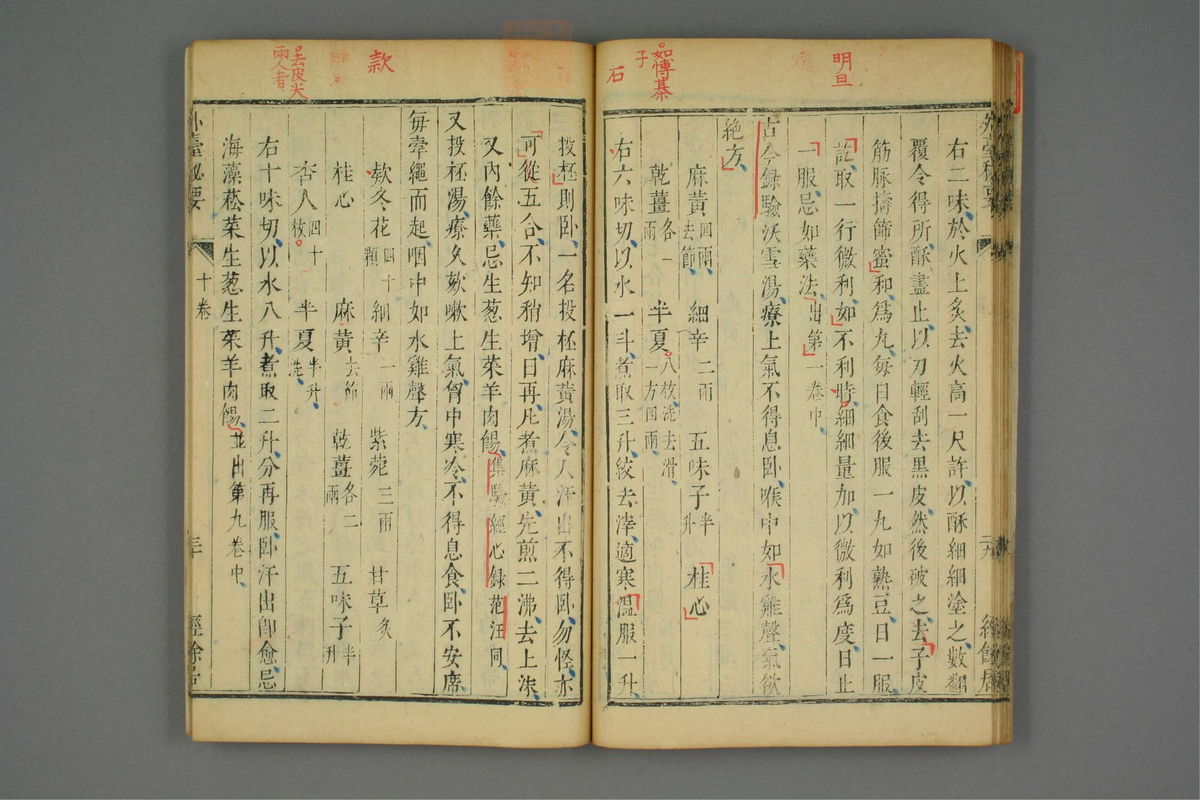 明旦
如博棊
子
石
右二味於火上炙去火高一尺許以酥細細塗之數翻
覆令得所酥盡止以刀輕刮去黑皮然後破之去子皮
筋脉擣篩蜜和爲丸每日食後服一丸如熟豆日一服
訖取一行微利如不利時細細量加以微利爲度日止
一服忌如藥法出第一卷中
古今録驗沃雪湯療上氣不得息卧喉中如水雞聲氣欲
絶方
麻黃四兩去節 細辛二兩 五味子半升 桂心
乾薑各一兩 半夏八枚洗去滑一方四兩
右六味切以水一斗煮取三升絞去滓適寒溫服一升
款
去皮尖
兩人者
投杯則卧一名投杯麻黃湯令人汗出不得卧勿怪亦
可從五合不知稍增日再凡煮麻黃先煎二沸去上沫
又内餘藥忌生葱生菜羊肉餳集驗經心録范汪同
又投杯湯療久欬嗽上氣胷中寒冷不得息食卧不安席
每牽繩而起咽中如水雞聲方
欵冬花四十顆 細辛一兩 紫菀三兩 甘草炙
桂心 麻黃去節 乾薑各二兩 五味子半升
杏人四十枚 半夏半升洗
右十味切以水八升煮取二升分再服卧汗出卽愈忌
海藻菘菜生葱生菜羊肉餳並出第九卷中
外臺秘要 十卷 三十 經餘居